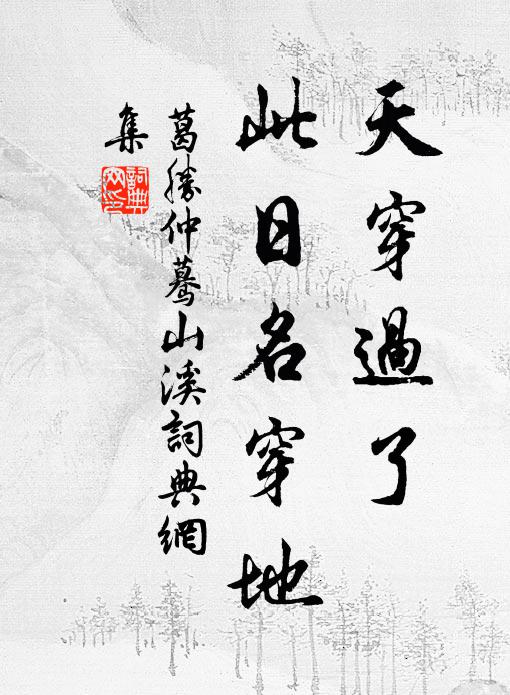 天穿過了
此日名穿地
葛勝仲驀山溪詞典網
集
詞典網印